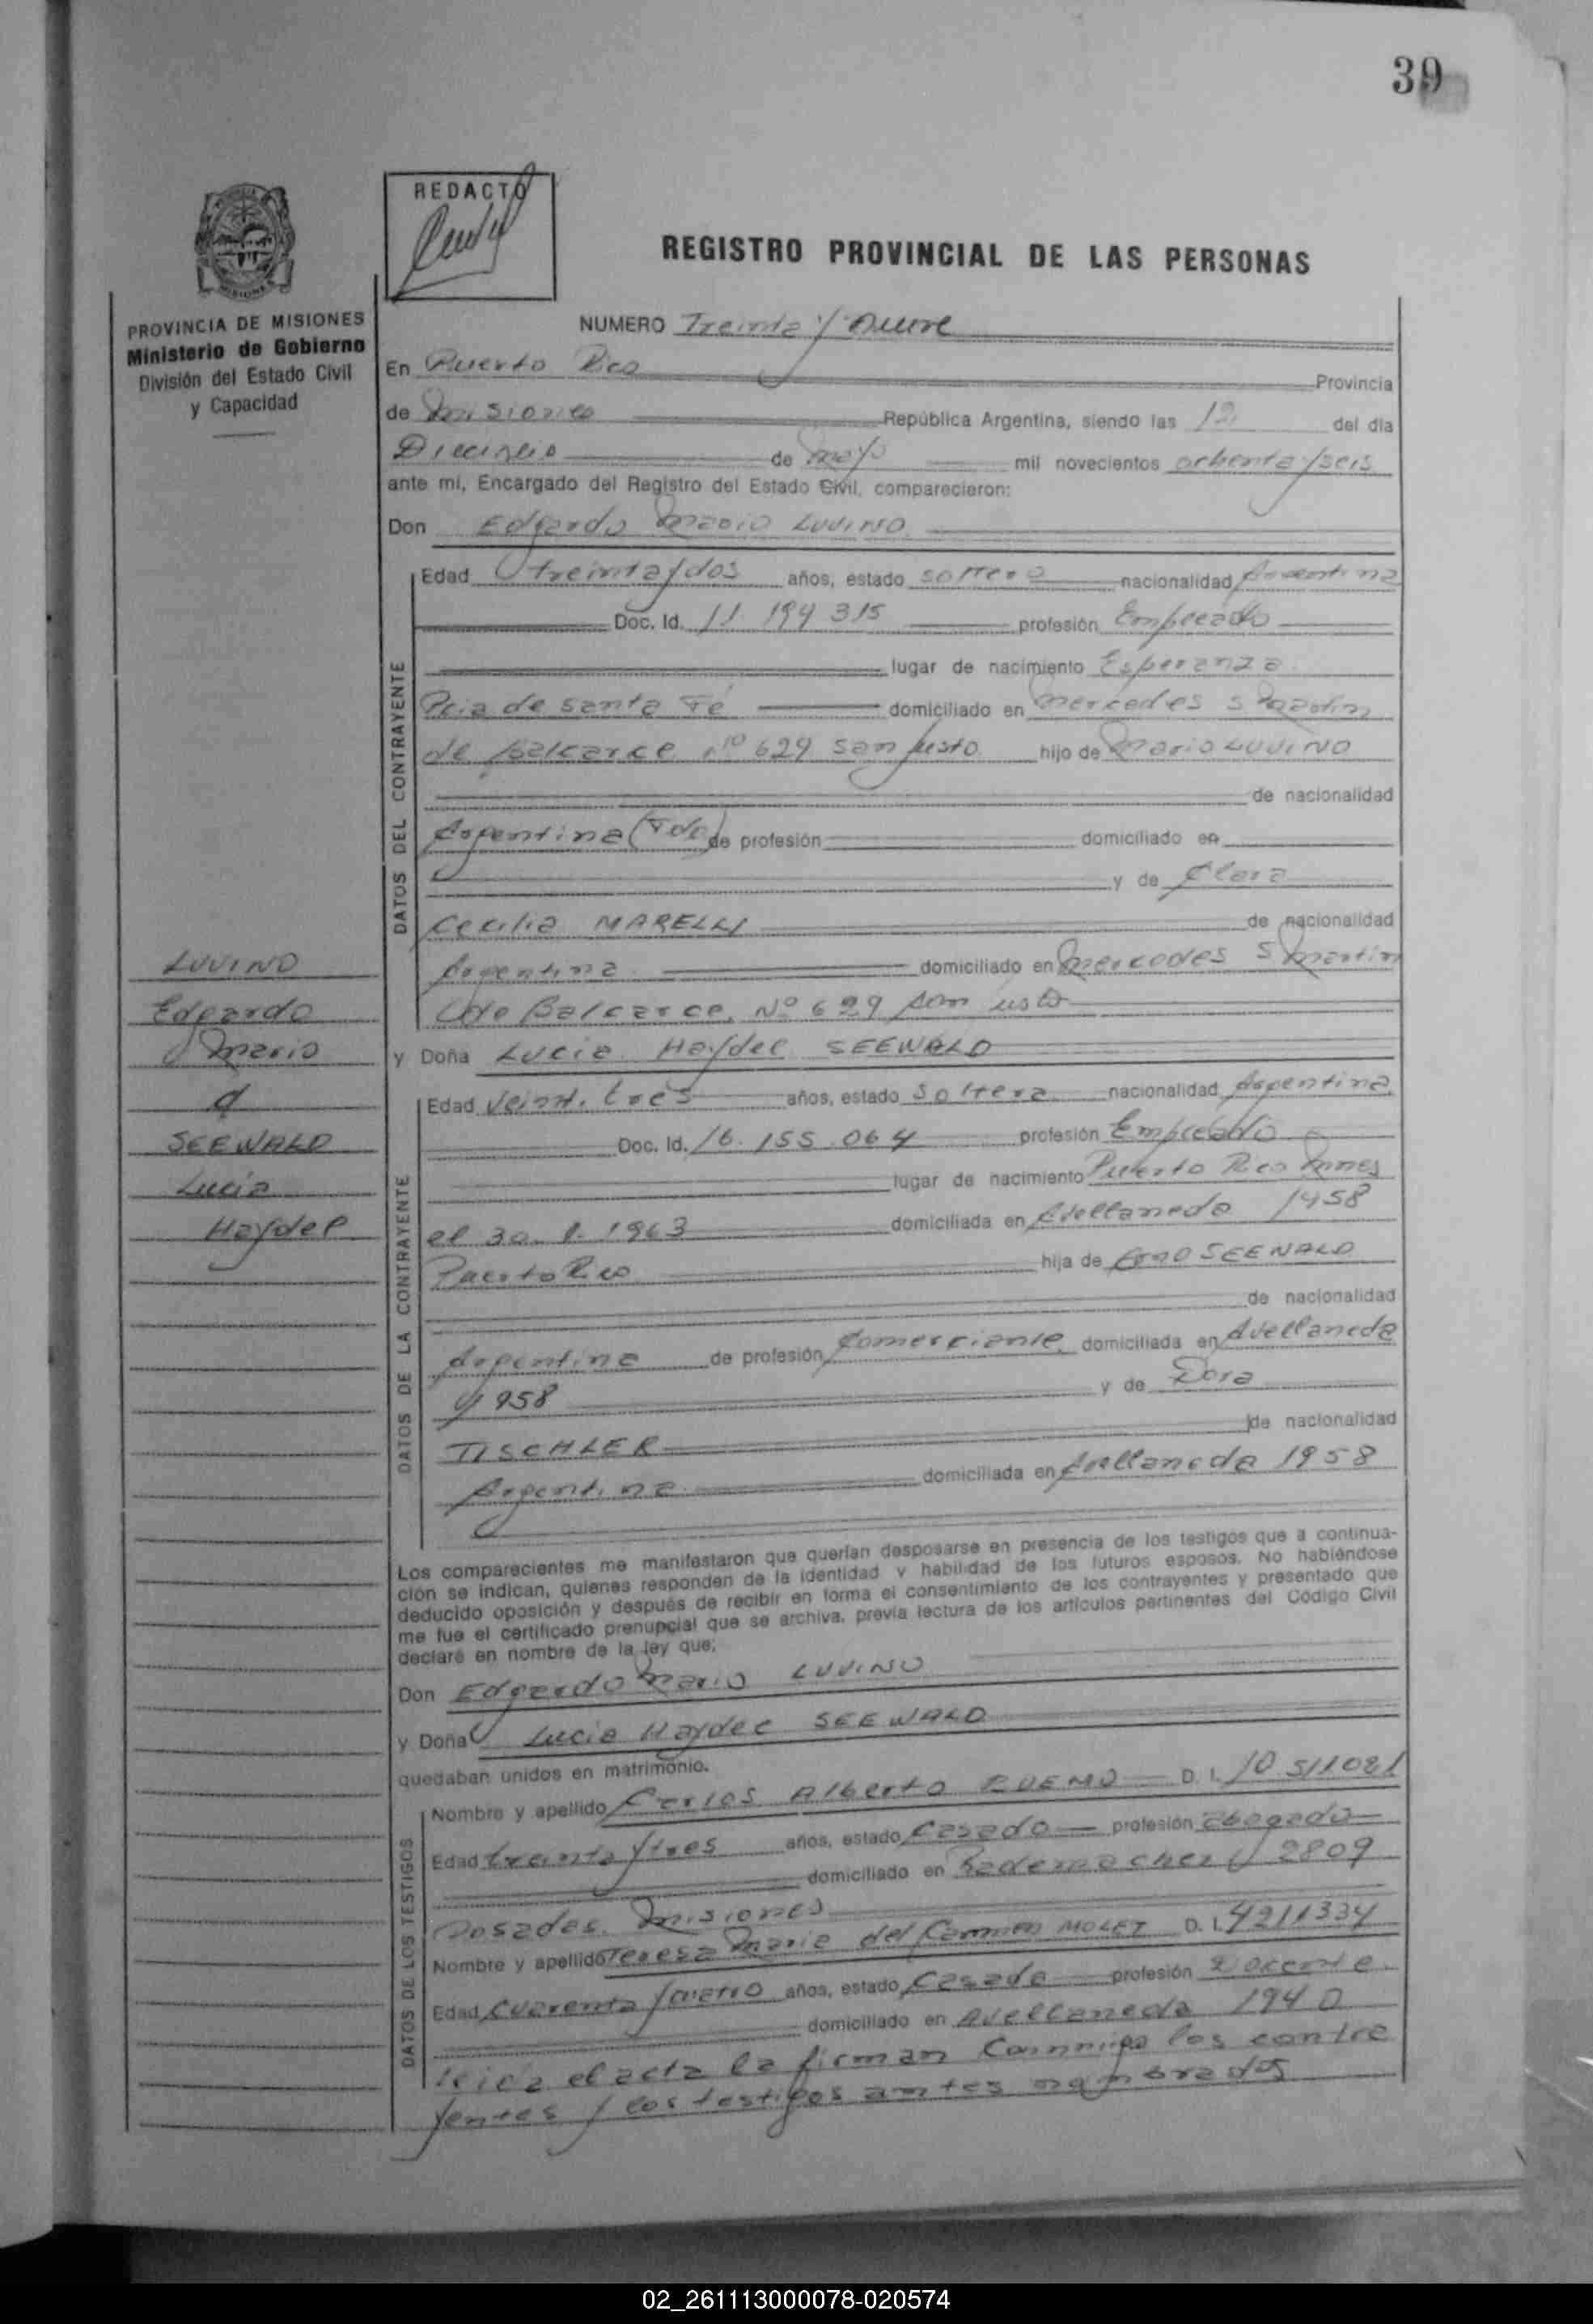 39
REDACTÓ
REGISTRO PROVINCIAL DE LAS PERSONAS
MISIONES
PROVINCIA DE MISIONES
Ministerio de Gobierno
División del Estado Civil
y Capacidad
NUMERO Treinta y Nueve
En Puerto Rico Provincia
de Misiones República Argentina, siendo las 12 del día
Dieciseis de mayo mil novecientos ochenta y seis
ante mí, Encargado del Registro del Estado Civil, comparecieron:
Don Edgardo Mario LUVINO
DATOS DEL CONTRAYENTE
Edad treinta y dos años, estado soltero nacionalidad Argentina
Doc. Id. 11 194 315 profesión Empleado
lugar de nacimiento Esperanza
Pcia de Santa Fé domiciliado en Mercedes S Martin
de Balcarce Nº 629 San Justo hijo de Mario LUVINO
de nacionalidad
Argentina (Fdo) de profesión domiciliado en
y de Clara
Cecilia MARELLI de nacionalidad
Argentina domiciliado en Mercedes S Martin
de Balcarce, Nº 629 San Justo
LUVINO
Edgardo
Mario
SEEWALD
Lucía
Haydee
y Doña Lucia Haydee SEEWALD
DATOS DE LA CONTRAYENTE
Edad Veinti tres años, estado Soltera nacionalidad Argentina
Doc. Id. 16.155.064 profesión Empleado
lugar de nacimiento Puerto Rico Mnes
el 30. 1963 domiciliada en Avellaneda 1958
Puerto Rico hija de SEEWALD
de nacionalidad
Argentina de profesión Comerciante domiciliada en Avellaneda
1958 y de Dora
TISCHLER de nacionalidad
Argentina domiciliada en Avellaneda 1958
Los comparecientes me manifestaron que querían desposarse en presencia de los testigos que a continua-
ción se indican, quienes responden de la identidad y habilidad de los futuros esposos. No habiéndose
deducido oposición y después de recibir en forma el consentimiento de los contrayentes y presentado que
me fue el certificado prenupcial que se archiva, previa lectura de los artículos pertinentes del Código Civil
declaré en nombre de la ley que;
Don Edgardo Mario LUVINO
y Doña Lucia Haydee SEEWALD
quedaban unidos en matrimonio.
DATOS DE LOS TESTIGOS
Nombre y apellido Carlos Alberto D. I. 10 511081
Edad treinta y tres años, estado Casado profesión abogado
domiciliado en Rademacher 2809
Posadas. Misiones
Nombre y apellido Teresa Maria del Carmen MOLET D. I. 4211334
Edad Cuarenta y cuatro años, estado Casada profesión Docente
domiciliado en Avellaneda 1940
leida el acta la firman Conmigo los contra
yentes y los testigos antes nombrados
02_261113000078-020574